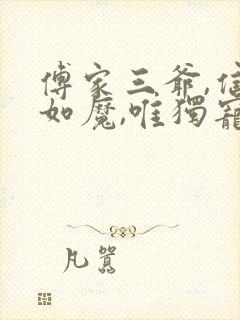 傅家三爷,信
如魔,唯獨寵
凡囂